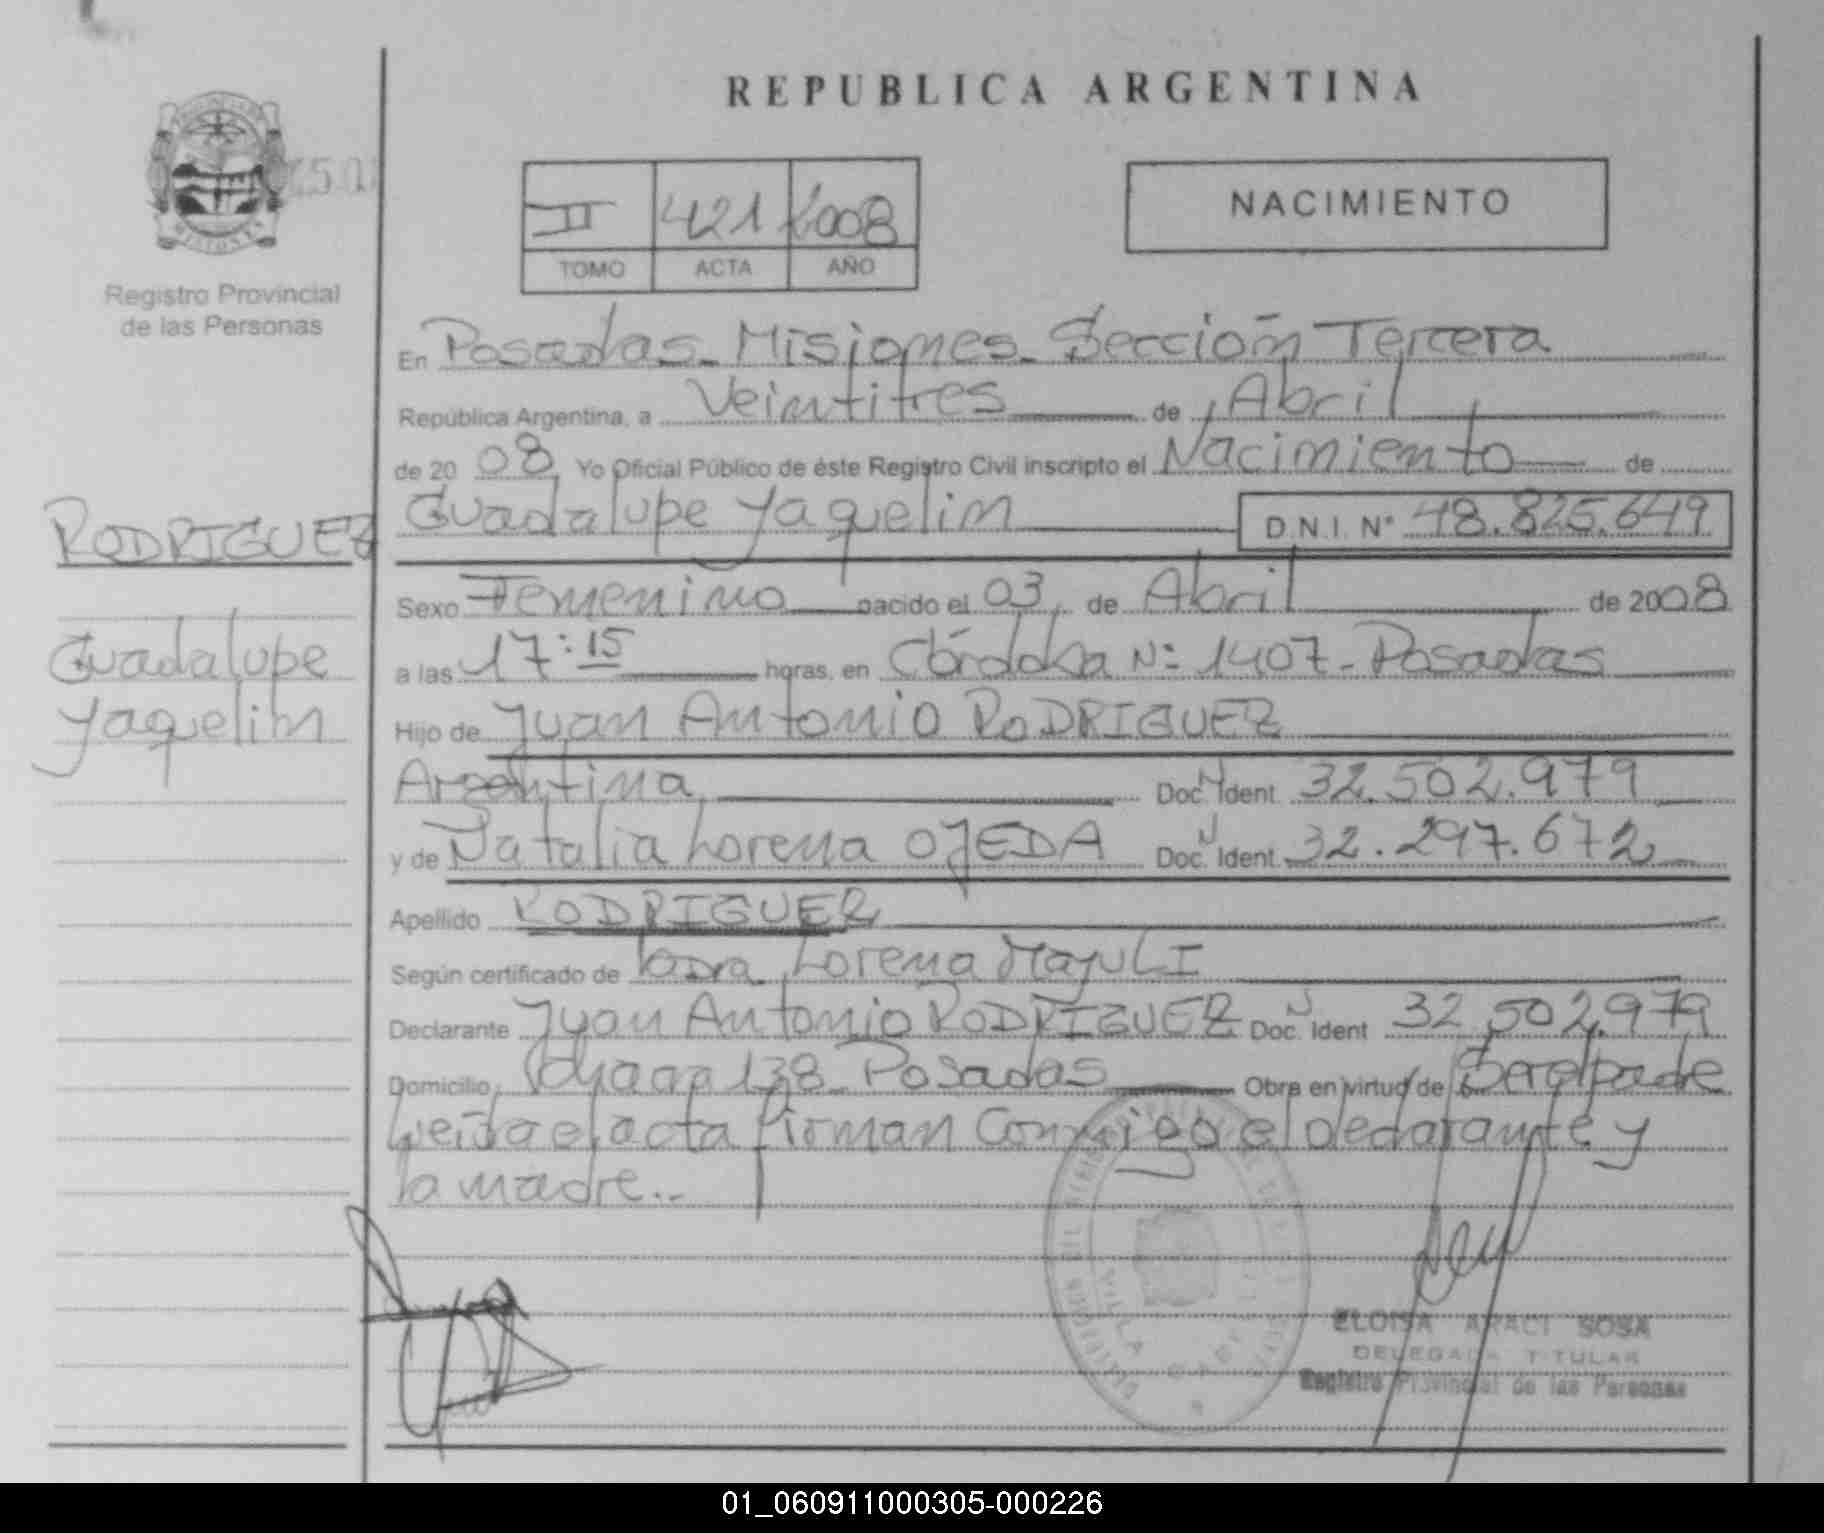 REPUBLICA ARGENTINA
II 421 2008
TOMO ACTA AÑO
NACIMIENTO
Registro Provincial
de las Personas
En Posadas - Misiones - Sección Tercera
República Argentina, a Veintitres de Abril
de 2008 Yo Oficial Público de éste Registro Civil inscripto el Nacimiento de
Guadalupe Yaquelin D.N.I. N° 48.825.649
RODRIGUEZ
Guadalupe
Yaquelin
Sexo Femenino nacido el 03 de Abril de 2008
a las 17:15 horas, en Córdoba N° 1407 - Posadas
Hijo de Juan Antonio RODRIGUEZ
Argentina Doc. Ident. 32.502.979
y de Natalia Lorena OJEDA Doc. Ident. 32.297.672
Apellido RODRIGUEZ
Según certificado de Lorena
Declarante Juan Antonio RODRIGUEZ Doc. Ident 32.502.979
Domicilio 138 - Posadas Obra en virtud de
Leída el acta firman Conmigo el declarante y
la madre..
VILLA
ELOISA ARACI SOSA
DELEGADA TITULAR
Registro Provincial de las Personas
01_060911000305-000226